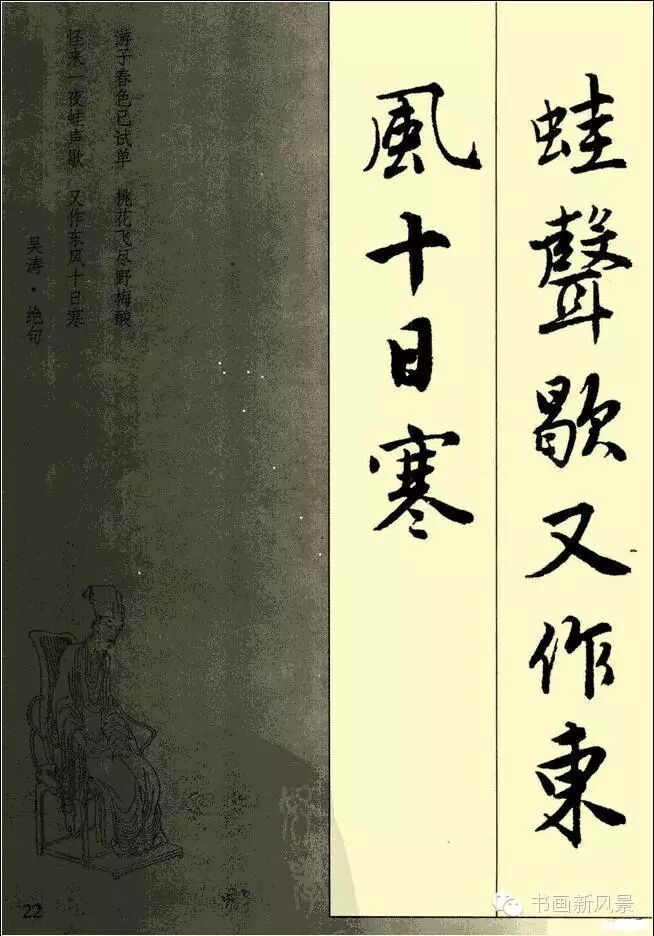 蛙聲歇又作東
風十日寒
游子春色已试单 桃花飞尽野梅酸
怪来一夜蛙声歇 又作东风十日寒
吴涛·绝句
22
书画新风景